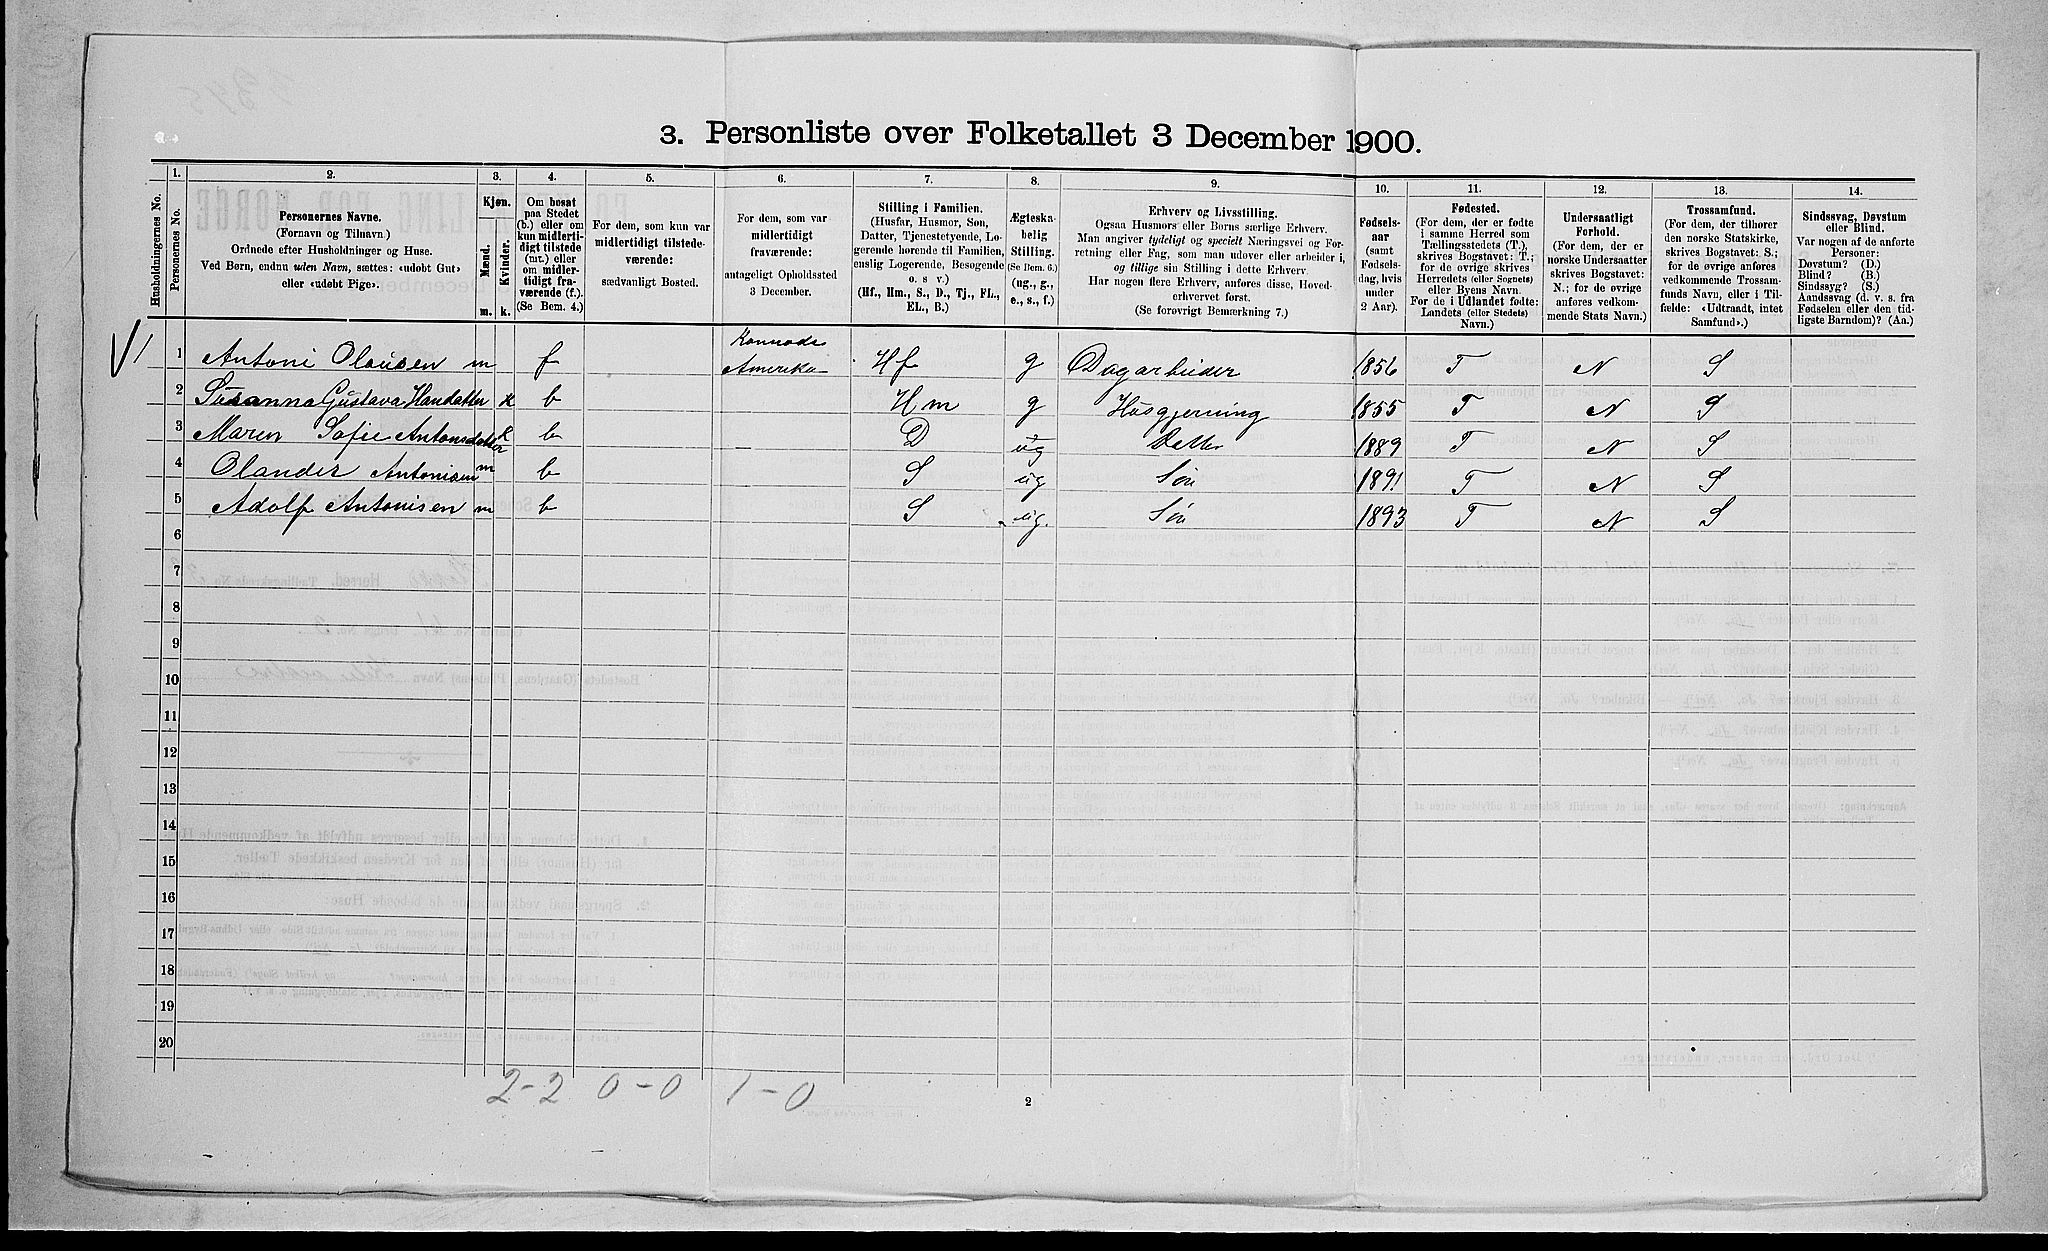 3. Personliste over Folketallet 3 December 1900.
1. 2. 3. 4. 5. 6. 7. 8. 9. 10. 11. 12. 13. 14.
Husholdningernes No.
Personernes No.
Personernes Navne.
(Fornavn og Tilnavn.)
Ordnede efter Husholdninger og Huse.
Ved Børn, endnu uden Navn, sættes: «udøbt Gut»
eller «udøbt Pige».
Kjøn.
Mænd.
Kvinder.
m. k.
Om bosat
paa Stedet
(b.) eller om
kun midler-
tidigt tilstede
(mt.) eller
om midler-
tidigt fra-
værende (f.).
(Se Bem. 4.)
For dem, som kun var
midlertidigt tilstede-
værende:
sædvanligt Bosted.
For dem, som var
midlertidigt
fraværende:
antageligt Opholdssted
3 December.
Stilling i Familien.
(Husfar, Husmor, Søn,
Datter, Tjenestetyende, Lo-
gerende hørende til Familien,
enslig Logerende, Besøgende
o. s. v.)
(Hf., Hm., S., D., Tj., FL.,
EL., B.)
Ægteska-
belig
Stilling.
(Se Bem. 6.)
(ug., g.,
e., s., f.)
Erhverv og Livsstilling.
Ogsaa Husmors eller Børns særlige Erhverv.
Man angiver tydeligt og specielt Næringsvei og For-
retning eller Fag, som man udøver eller arbeider i,
og tillige sin Stilling i dette Erhverv.
Har nogen flere Erhverv, anføres disse, Hoved-
erhvervet først.
(Se forøvrigt Bemærkning 7.)
Fødsels-
aar
(samt
Fødsels-
dag, hvis
under
2 Aar).
Fødested.
(For dem, der er fødte
i samme Herred som
Tællingsstedets (T.),
skrives Bogstavet: T.;
for de øvrige skrives
Herredets (eller Sognets)
eller Byens Navn.
For de i Udlandet fødte:
Landets (eller Stedets)
Navn.)
Undersaatligt
Forhold.
(For dem, der er
norske Undersaatter
skrives Bogstavet:
N.; for de øvrige
anføres vedkom-
mende Stats Navn.)
Trossamfund.
(For dem, der tilhører
den norske Statskirke,
skrives Bogstavet: S.;
for de øvrige anføres
vedkommende Trossam-
funds Navn, eller i Til-
fælde: «Udtraadt, intet
Samfund».)
Sindssvag, Døvstum
eller Blind.
Var nogen af de anførte
Personer:
Døvstum? (D.)
Blind? (B.)
Sindssyg? (S.)
Aandssvag (d. v. s. fra
Fødselen eller den tid-
ligste Barndom)? (Aa.)
1 1 Antoni Olausen m f Amerika Hf g Dagarbeider 1856 T N S
2 Susanna Gustava k b Hm g Husgjerning 1855 T N S
3 Maren Sofie Antonsdatter k b D ug Datter 1889 T N S
4 Olander Antonisen m b S ug Søn 1891 T N S
5 Adolf Antonisen m b S ug. Søn 1893 T N S
6
7
8
9
10
11
12
13
14
15
16
17
18
19
20
2-2 0-0 1-0
2